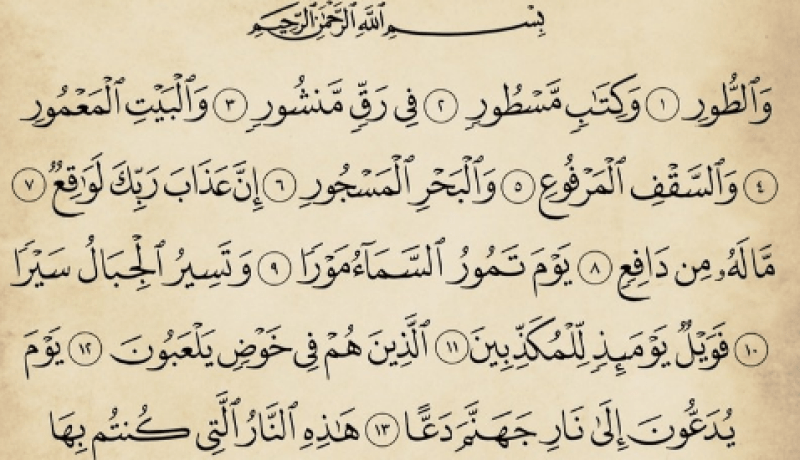 بِسْمِ ٱللَّهِ ٱلرَّحْمَٰنِ ٱلرَّحِيمِ
وَٱلطُّورِ ١ وَكِتَٰبٍ مَّسْطُورٍ ٢ فِى رَقٍّ مَّنشُورٍ ٣ وَٱلْبَيْتِ ٱلْمَعْمُورِ
٤ وَٱلسَّقْفِ ٱلْمَرْفُوعِ ٥ وَٱلْبَحْرِ ٱلْمَسْجُورِ ٦ إِنَّ عَذَابَ رَبِّكَ لَوَٰقِعٌ ٧
مَّا لَهُۥ مِن دَافِعٍ ٨ يَوْمَ تَمُورُ ٱلسَّمَآءُ مَوْرًا ٩ وَتَسِيرُ ٱلْجِبَالُ سَيْرًا
١٠ فَوَيْلٌ يَوْمَئِذٍ لِّلْمُكَذِّبِينَ ١١ ٱلَّذِينَ هُمْ فِى خَوْضٍ يَلْعَبُونَ ١٢ يَوْمَ
يُدَعُّونَ إِلَىٰ نَارِ جَهَنَّمَ دَعًّا ١٣ هَٰذِهِ ٱلنَّارُ ٱلَّتِى كُنتُم بِهَا